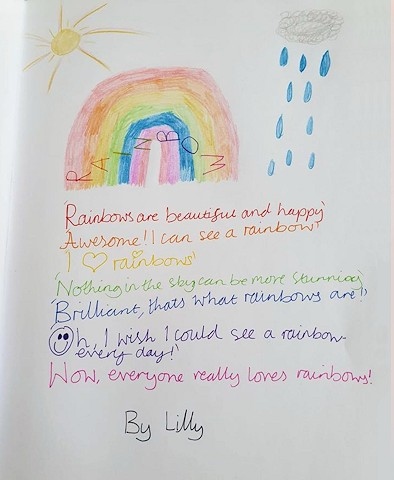 RAINBOW
'Rainbows are beautiful and happy'
'Awesome! I can see a rainbow'
'I ♡ rainbows'
'Nothing in the sky can be more stunning'
'Brilliant, thats what rainbows are!'
'Oh, I wish I could see a rainbow
every day!'
'Wow, everyone really loves rainbows!'
By Lilly